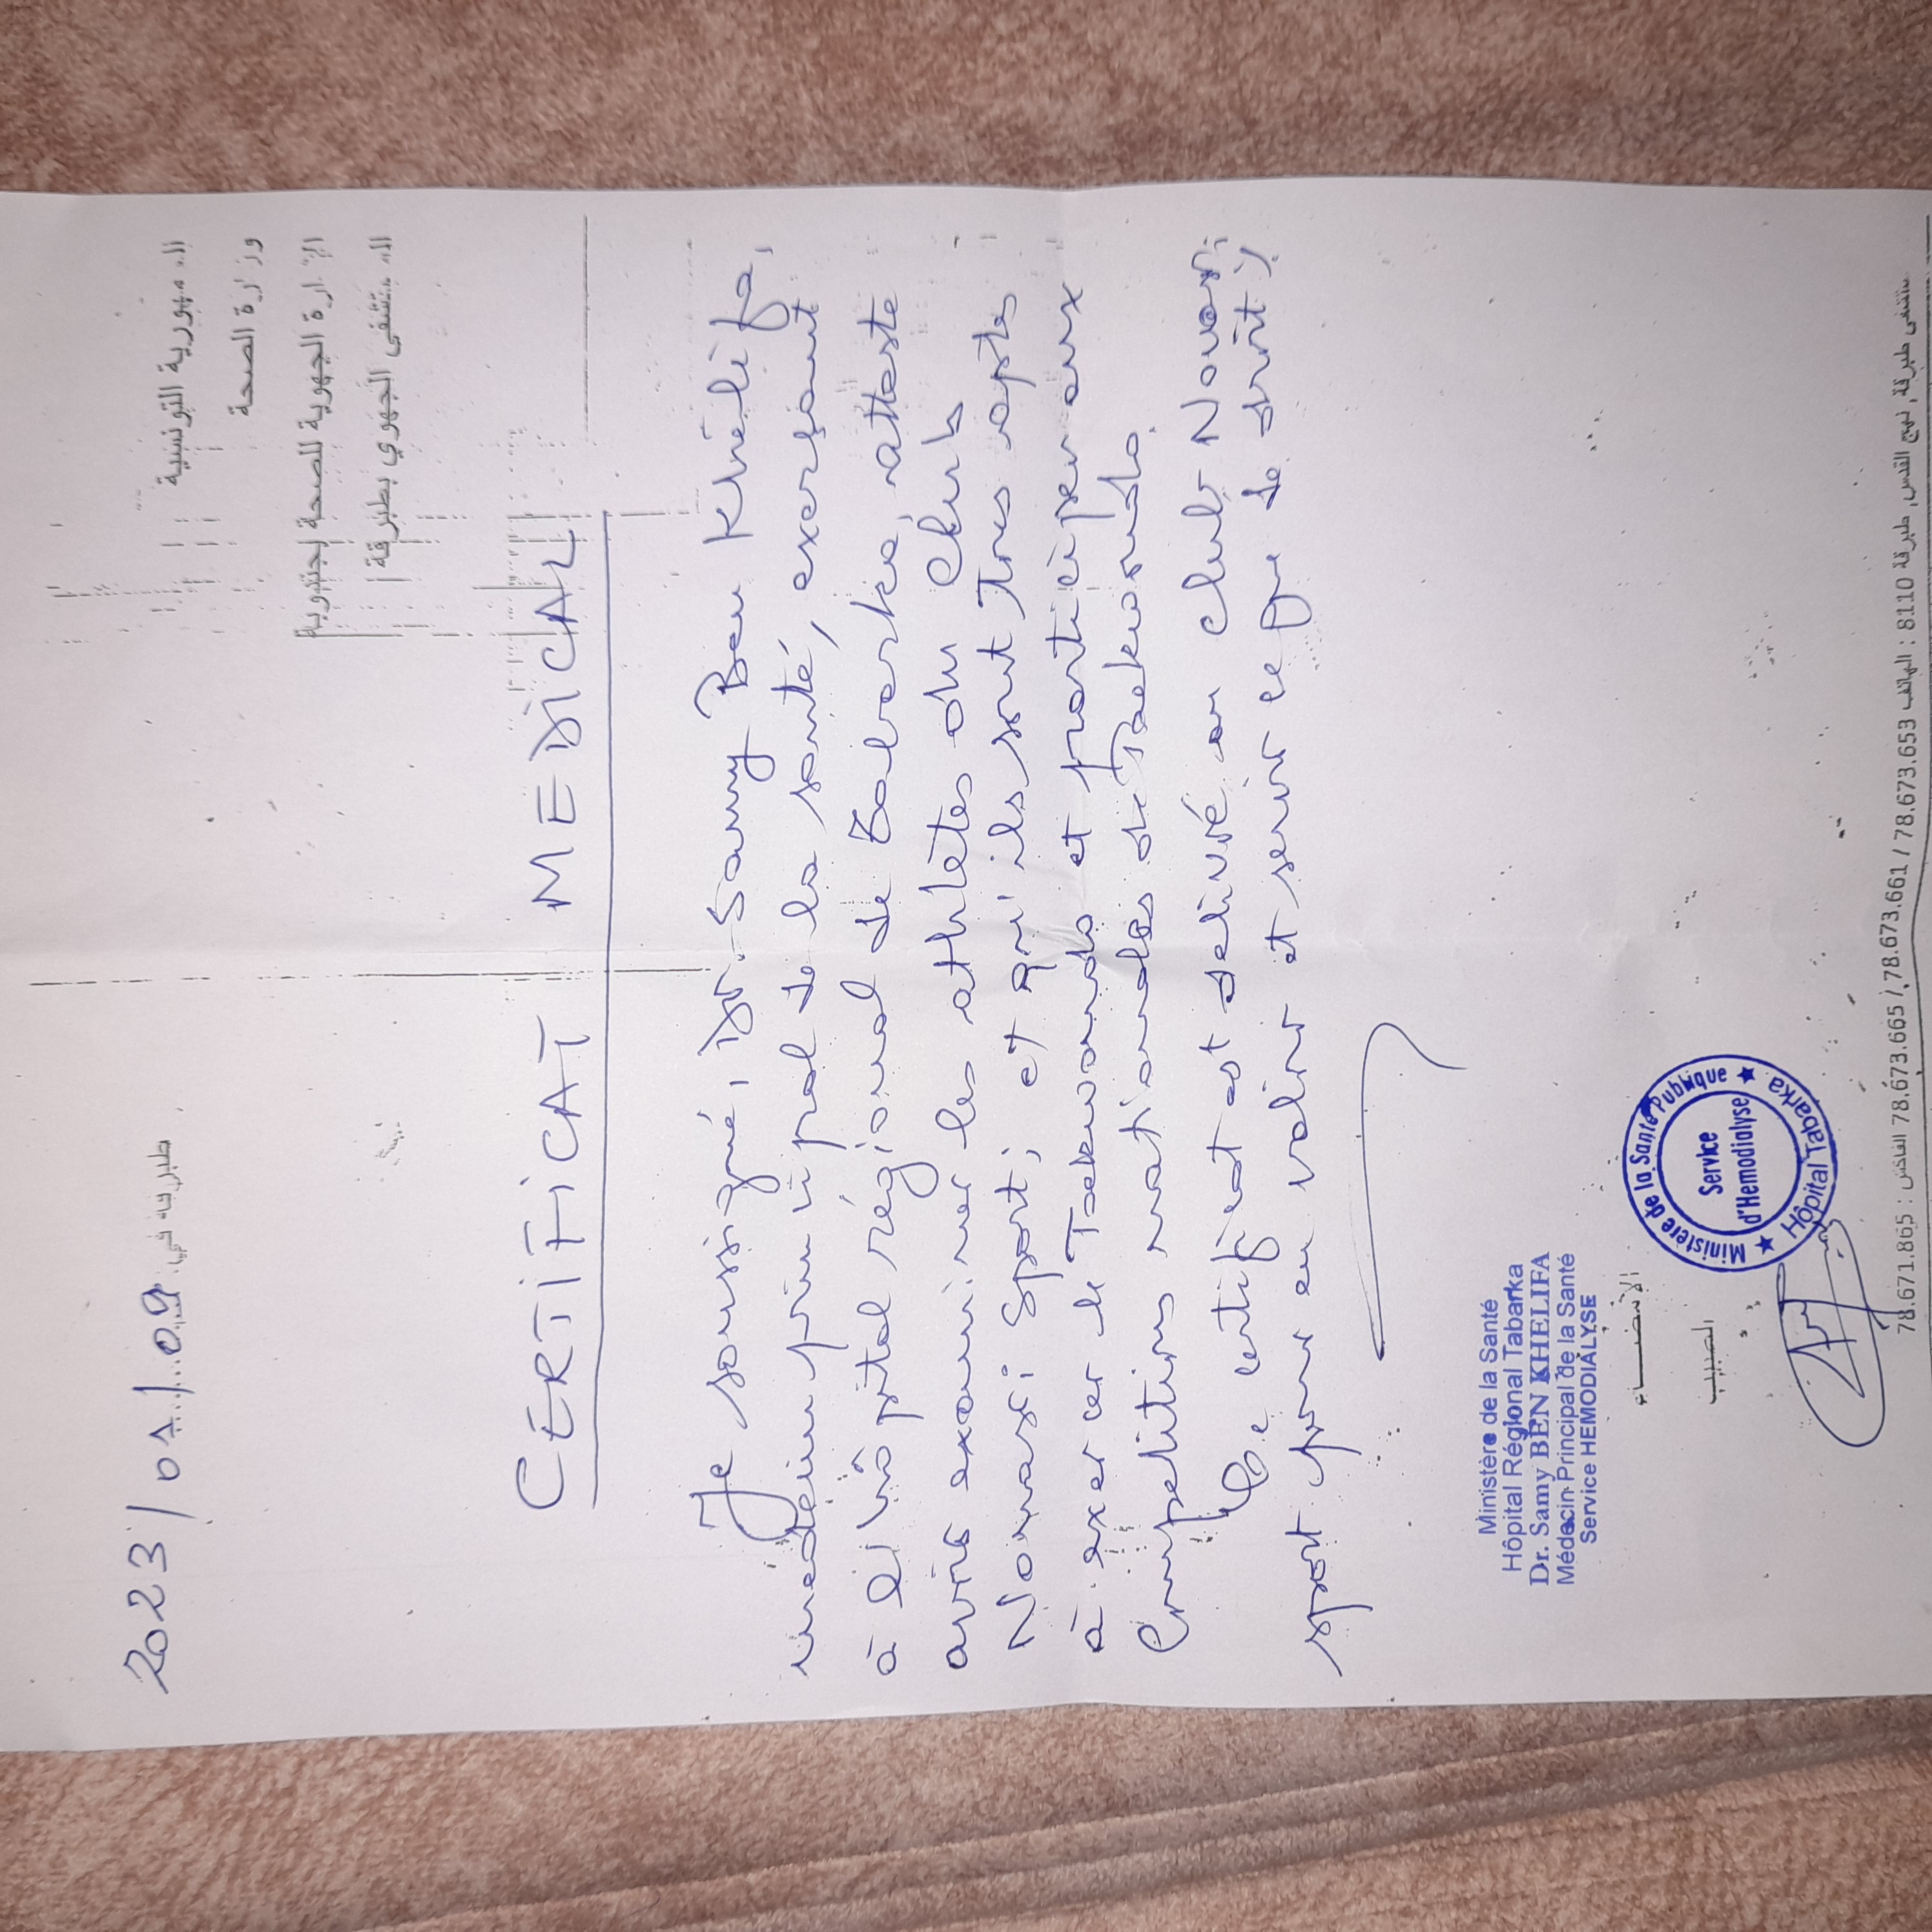 الجمهورية التونسية
وزارة الصحة
الإدارة الجهوية للصحة بجندوبة
المستشفى الجهوي بطبرقة
طبرقة في 2023/01/09
CERTIFICAT MEDICAL
Je soussigné, Dr. Samy Ben Khélifa,
médecin principal de la santé, exerçant
à l'hôpital régional de Tabarka, atteste
avoir examiner les athlètes du Club
Nouassi Sport; et qu'ils sont tous aptes
à exercer le Taekwondo et participer aux
Compétitions nationales de Taekwondo.
Ce certificat est délivré au club Nouassi
sport pour en valoir et servir ce que de droit
Ministère de la Santé
Hôpital Régional Tabarka
Dr. Samy BEN KHELIFA
Médecin Principal de la Santé
Service HEMODIALYSE
الإمضاء
الطبيب
Ministère de la Santé Publique
Service
d'Hemodialyse
Hôpital Tabarka
مستشفى طبرقة, نهج القدس, طبرقة 8110 : الهاتف 78.673.653 / 78.673.661 / 78.673.665 الفاكس : 78.671.865